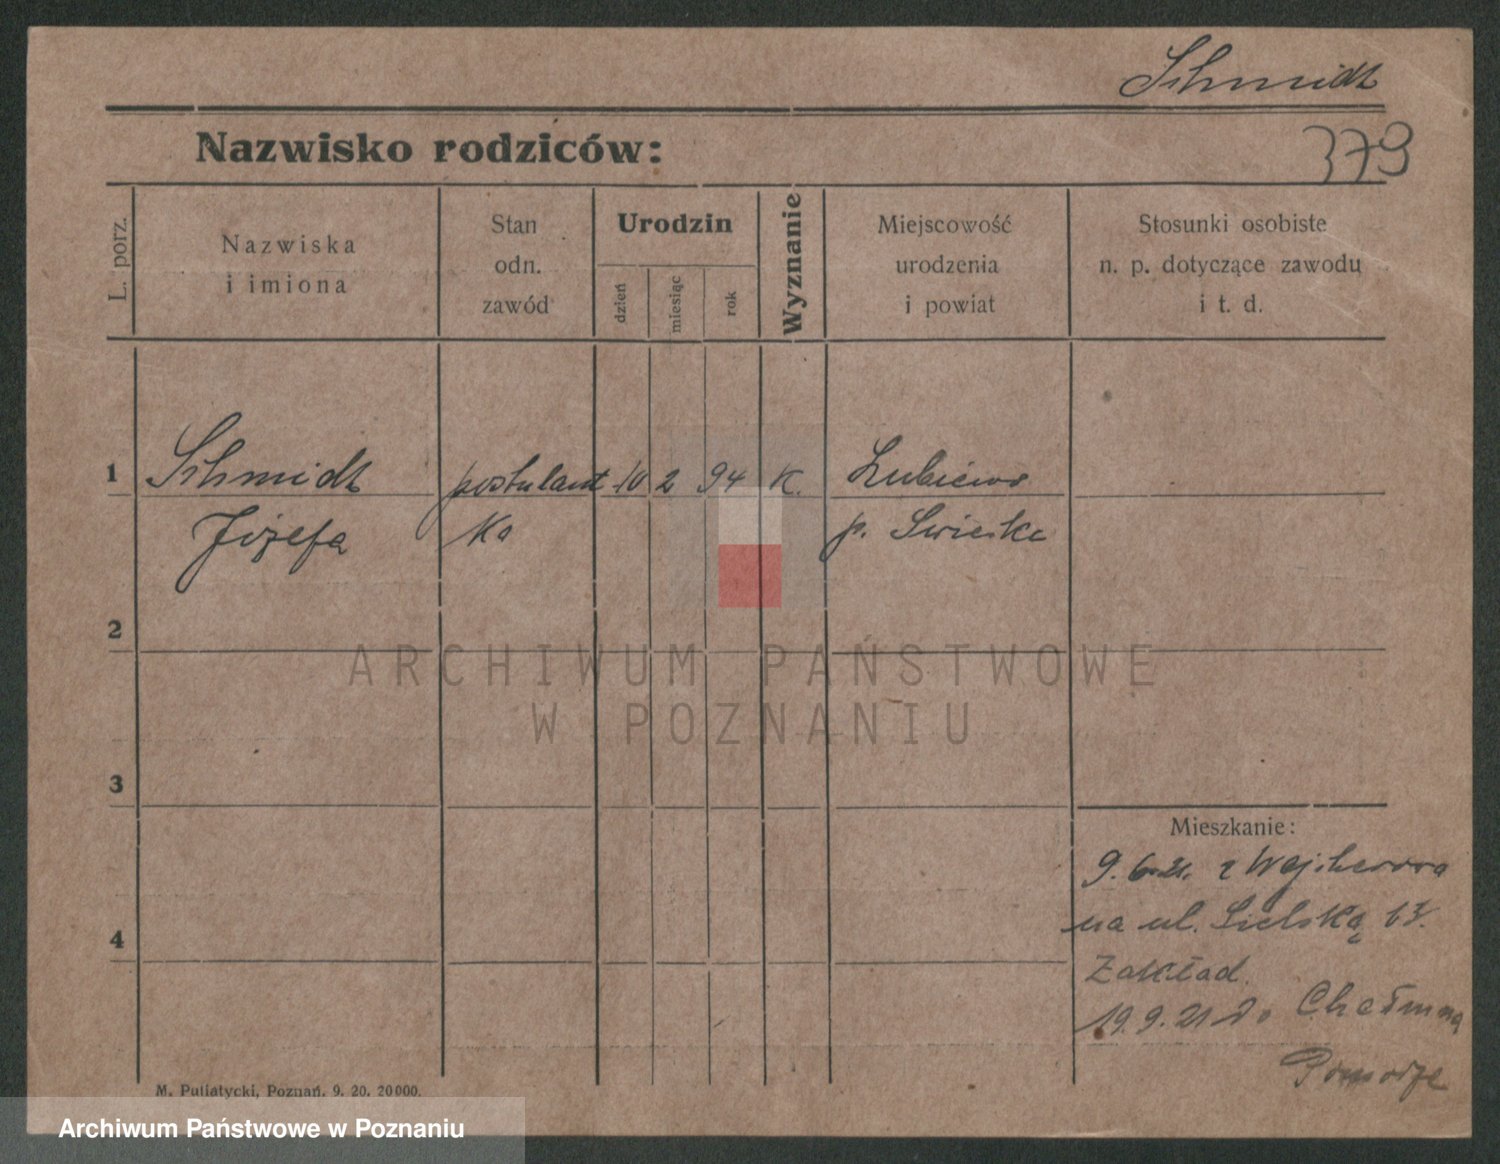 Schmidt
Nazwisko rodziców:
379
L. porz.
Nazwiska
i imiona
Stan
odn.
zawód
Urodzin
dzień
miesiąc
rok
Wyznanie
Miejscowość
urodzenia
i powiat
Stosunki osobiste
n. p. dotyczące zawodu
i t. d.
1 Schmidt postulant 10 2 94 K. Lubiewo
Józefa ka p. Swiecke
2
3
4
Mieszkanie:
9.6.21. z Wejherowa
na ul. Sielską 13.
Zakład.
19.9.21 do Chełmna
Pomorze
M. Putiatycki, Poznań. 9. 20. 20000.
ARCHIWUM PAŃSTWOWE
W POZNANIU
Archiwum Państwowe w Poznaniu